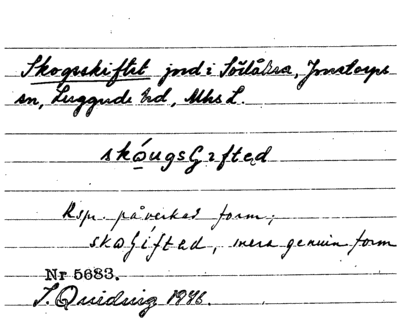 Skogsskiftet jord i Södåkra, Jonstorps
sn, Luggude hd, Mhs L.
skóugsʃıftəd
Rspr. påverkad form;
skoʃíftəd, mera genuin form
Nr 5683.
I. Quiding 1946.